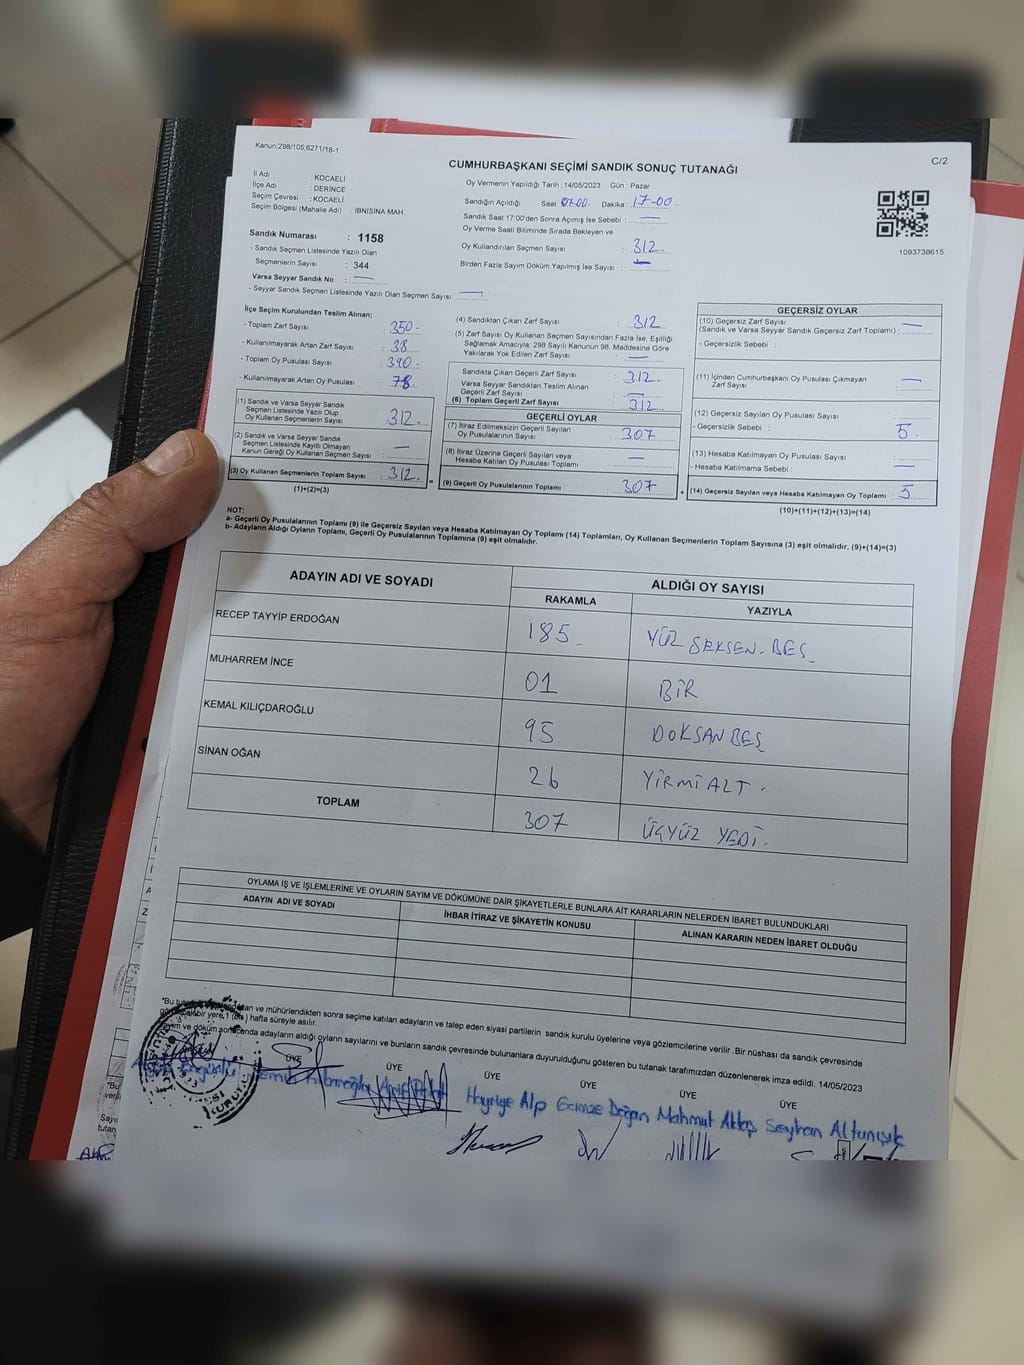 Kanun;298/105,6271/16-1
C/2
CUMHURBAŞKANI SEÇİMİ SANDIK SONUÇ TUTANAĞI
İl Adı : KOCAELİ
İlçe Adı : DERİNCE
Seçim Çevresi : KOCAELİ
Seçim Bölgesi (Mahalle Adı) : İBNİSİNA MAH.
Oy Vermenin Yapıldığı Tarih : 14/05/2023 Gün : Pazar
Sandığın Açıldığı Saat 07.00. Dakika : 17-00.
Sandık Saat 17:00'den Sonra Açımış İse Sebebi : —
Oy Verme Saati Bitiminde Sırada Bekleyen ve
Oy Kullandırılan Seçmen Sayısı : 312.
Birden Fazla Sayım Döküm Yapılmış İse Sayısı : —
1093738615
Sandık Numarası : 1158
- Sandık Seçmen Listesinde Yazılı Olan
Seçmenlerin Sayısı : 344
Varsa Seyyar Sandık No : —
- Seyyar Sandık Seçmen Listesinde Yazılı Olan Seçmen Sayısı: —
İlçe Seçim Kurulundan Teslim Alınan;
- Toplam Zarf Sayısı : 350.
- Kullanılmayarak Artan Zarf Sayısı : 38
- Toplam Oy Pusulası Sayısı : 390.
- Kullanılmayarak Artan Oy Pusulası : 78
(1) Sandık ve Varsa Seyyar Sandık
Seçmen Listesinde Yazılı Olup
Oy Kullanan Seçmenlerin Sayısı : 312.
(2) Sandık ve Varsa Seyyar Sandık
Seçmen Listesinde Kayıtlı Olmayan
Kanun Gereği Oy Kullanan Seçmen Sayısı : —
(3) Oy Kullanan Seçmenlerin Toplam Sayısı : 312.
(1)+(2)=(3)
(4) Sandıktan Çıkan Zarf Sayısı : 312
(5) Zarf Sayısı Oy Kullanan Seçmen Sayısından Fazla İse, Eşitliği
Sağlamak Amacıyla; 298 Sayılı Kanunun 98. Maddesine Göre
Yakılarak Yok Edilen Zarf Sayısı : —
Sandıkta Çıkan Geçerli Zarf Sayısı : 312.
Varsa Seyyar Sandıktan Teslim Alınan
Geçerli Zarf Sayısı : —
(6) Toplam Geçerli Zarf Sayısı : 312.
GEÇERLİ OYLAR
(7) İtiraz Edilmeksizin Geçerli Sayılan
Oy Pusulalarının Sayısı : 307
(8) İtiraz Üzerine Geçerli Sayılan veya
Hesaba Katılan Oy Pusulası Toplamı : —
(9) Geçerli Oy Pusulalarının Toplamı : 307
GEÇERSİZ OYLAR
(10) Geçersiz Zarf Sayısı
(Sandık ve Varsa Seyyar Sandık Geçersiz Zarf Toplamı) : —
- Geçersizlik Sebebi :
(11) İçinden Cumhurbaşkanı Oy Pusulası Çıkmayan
Zarf Sayısı : —
(12) Geçersiz Sayılan Oy Pusulası Sayısı :
- Geçersizlik Sebebi : 5.
(13) Hesaba Katılmayan Oy Pusulası Sayısı :
- Hesaba Katılmama Sebebi : —
(14) Geçersiz Sayılan veya Hesaba Katılmayan Oy Toplamı : 5
(10)+(11)+(12)+(13)=(14)
NOT:
a- Geçerli Oy Pusulalarının Toplamı (9) ile Geçersiz Sayılan veya Hesaba Katılmayan Oy Toplamı (14) Toplamları, Oy Kullanan Seçmenlerin Toplam Sayısına (3) eşit olmalıdır. (9)+(14)=(3)
b- Adayların Aldığı Oyların Toplamı, Geçerli Oy Pusulalarının Toplamına (9) eşit olmalıdır.
ADAYIN ADI VE SOYADI
ALDIĞI OY SAYISI
RAKAMLA
YAZIYLA
RECEP TAYYİP ERDOĞAN 185. YÜZ SEKSEN. BEŞ
MUHARREM İNCE 01 BİR
KEMAL KILIÇDAROĞLU 95 DOKSAN BEŞ
SİNAN OĞAN 26 YİRMİ ALT.
TOPLAM 307 ÜÇYÜZ YEDİ.
OYLAMA İŞ VE İŞLEMLERİNE VE OYLARIN SAYIM VE DÖKÜMÜNE DAİR ŞİKAYETLERLE BUNLARA AİT KARARLARIN NELERDEN İBARET BULUNDUKLARI
ADAYIN ADI VE SOYADI
İHBAR İTİRAZ VE ŞİKAYETİN KONUSU
ALINAN KARARIN NEDEN İBARET OLDUĞU
ve mühürlendikten sonra seçime katılan adayların ve talep eden siyasi partilerin sandık kurulu üyelerine veya gözlemcilerine verilir .Bir nüshası da sandık çevresinde
bir yere 1 hafta süreyle asılır.
ve döküm sonucunda adayların aldığı oyların sayılarını ve bunların sandık çevresinde bulunanlara duyurulduğunu gösteren bu tutanak tarafımızdan düzenlenerek imza edildi. 14/05/2023
ÜYE ÜYE ÜYE ÜYE ÜYE ÜYE
Hayriye Alp Gamze Doğan Mahmut Aktaş Seyhan Altunışık